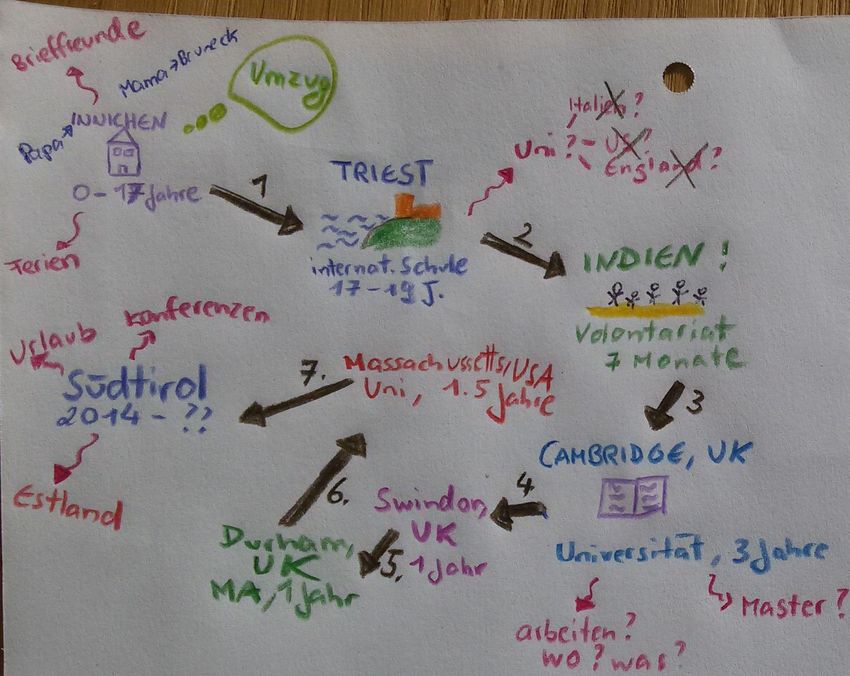 Brieffreunde
Mama→Bruneck
Umzug
INNICHEN
Papa→
0-17 Jahre
Ferien
1
TRIEST
internat. Schule
17-19 J.
Italien?
Uni? - US?
England?
2
INDIEN!
Volontariat
7 Monate
3
CAMBRIDGE, UK
Universität, 3 Jahre
Master?
arbeiten?
wo? was?
4
Swindon,
UK
1 Jahr
5.
Durham,
UK
MA, 1 Jahr
6.
Massachussetts/USA
Uni, 1.5 Jahre
7.
Südtirol
2014 - ??
Urlaub
Konferenzen
Estland